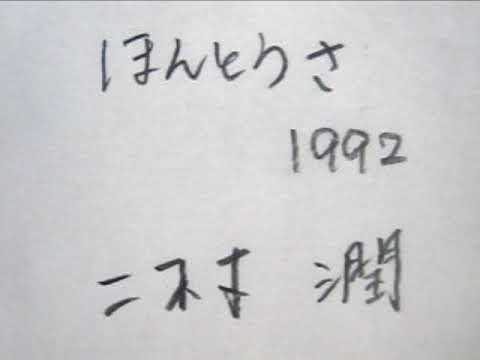 ほんとうさ
1992
二村 潤